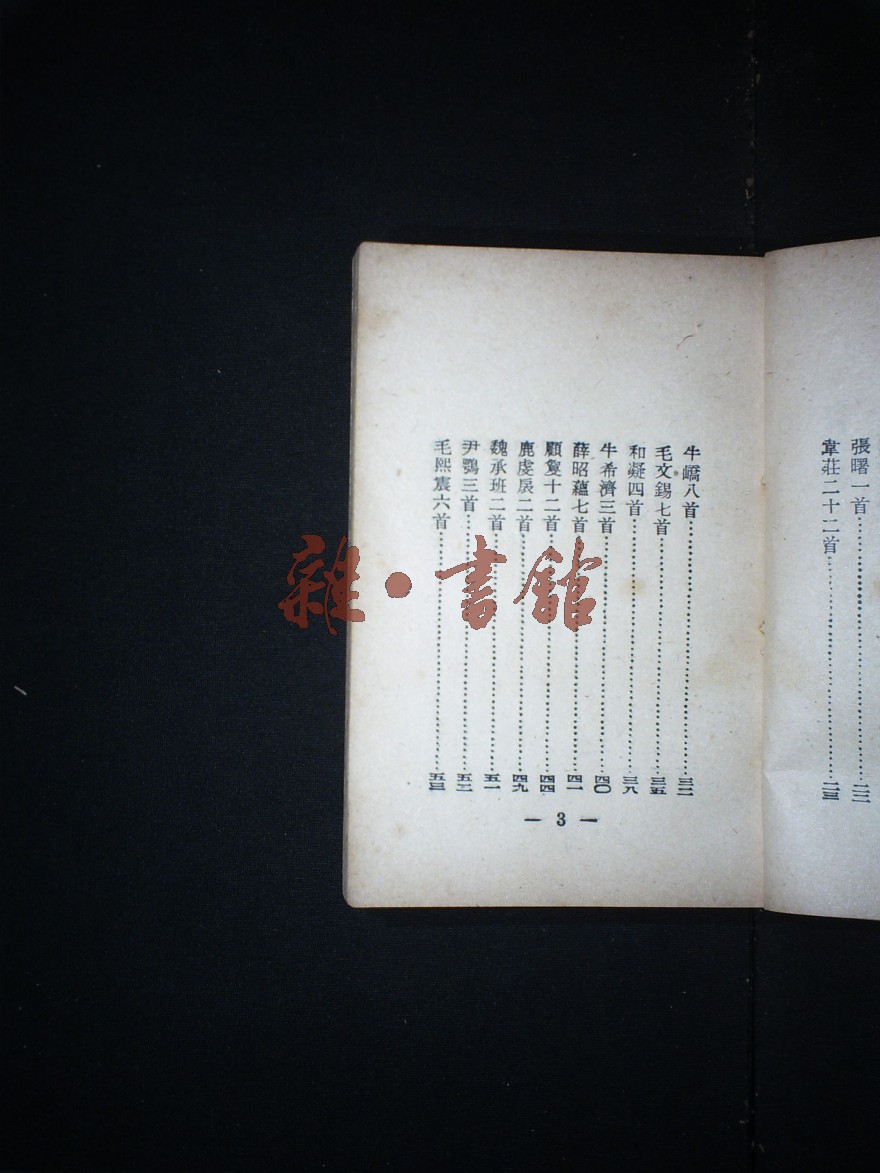 張曙一首……二二
韋莊二十二首……二三
牛嶠八首……三二
毛文錫七首……三五
和凝四首……三八
牛希濟三首……四〇
薛昭蘊七首……四一
顧敻十二首……四四
鹿虔扆二首……四九
魏承班二首……五一
尹鶚三首……五二
毛熙震六首……五三
— 3 —
雜·書館